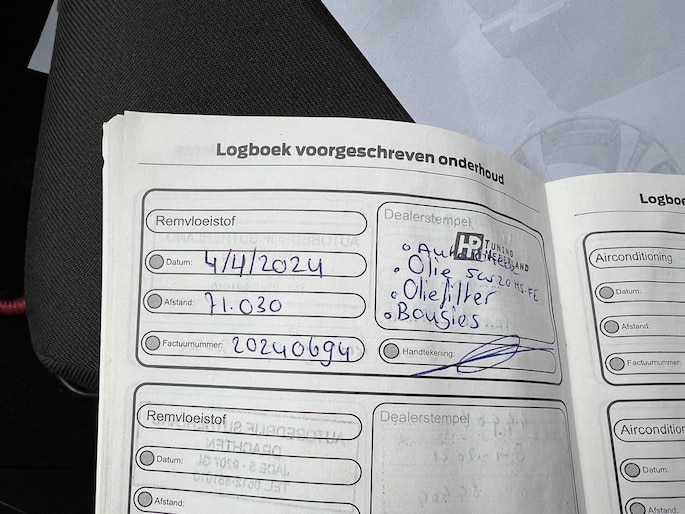 Logboek voorgeschreven onderhoud
Remvloeistof
Datum: 4/4/2024
Afstand: 71.030
Factuurnummer: 20240694
Dealerstempel
HP TUNING
Olie 5W20 MS-FE
Oliefilter
Bougies
Handtekening:
Remvloeistof
Datum:
Afstand:
Dealerstempel
AUTOBEDRIJF
DRACHTEN
JADE 5 - 9207 GL
Logboe
Airconditioning
Datum:
Afstand:
Factuurnummer:
Airconditior
Datum:
Afstand: